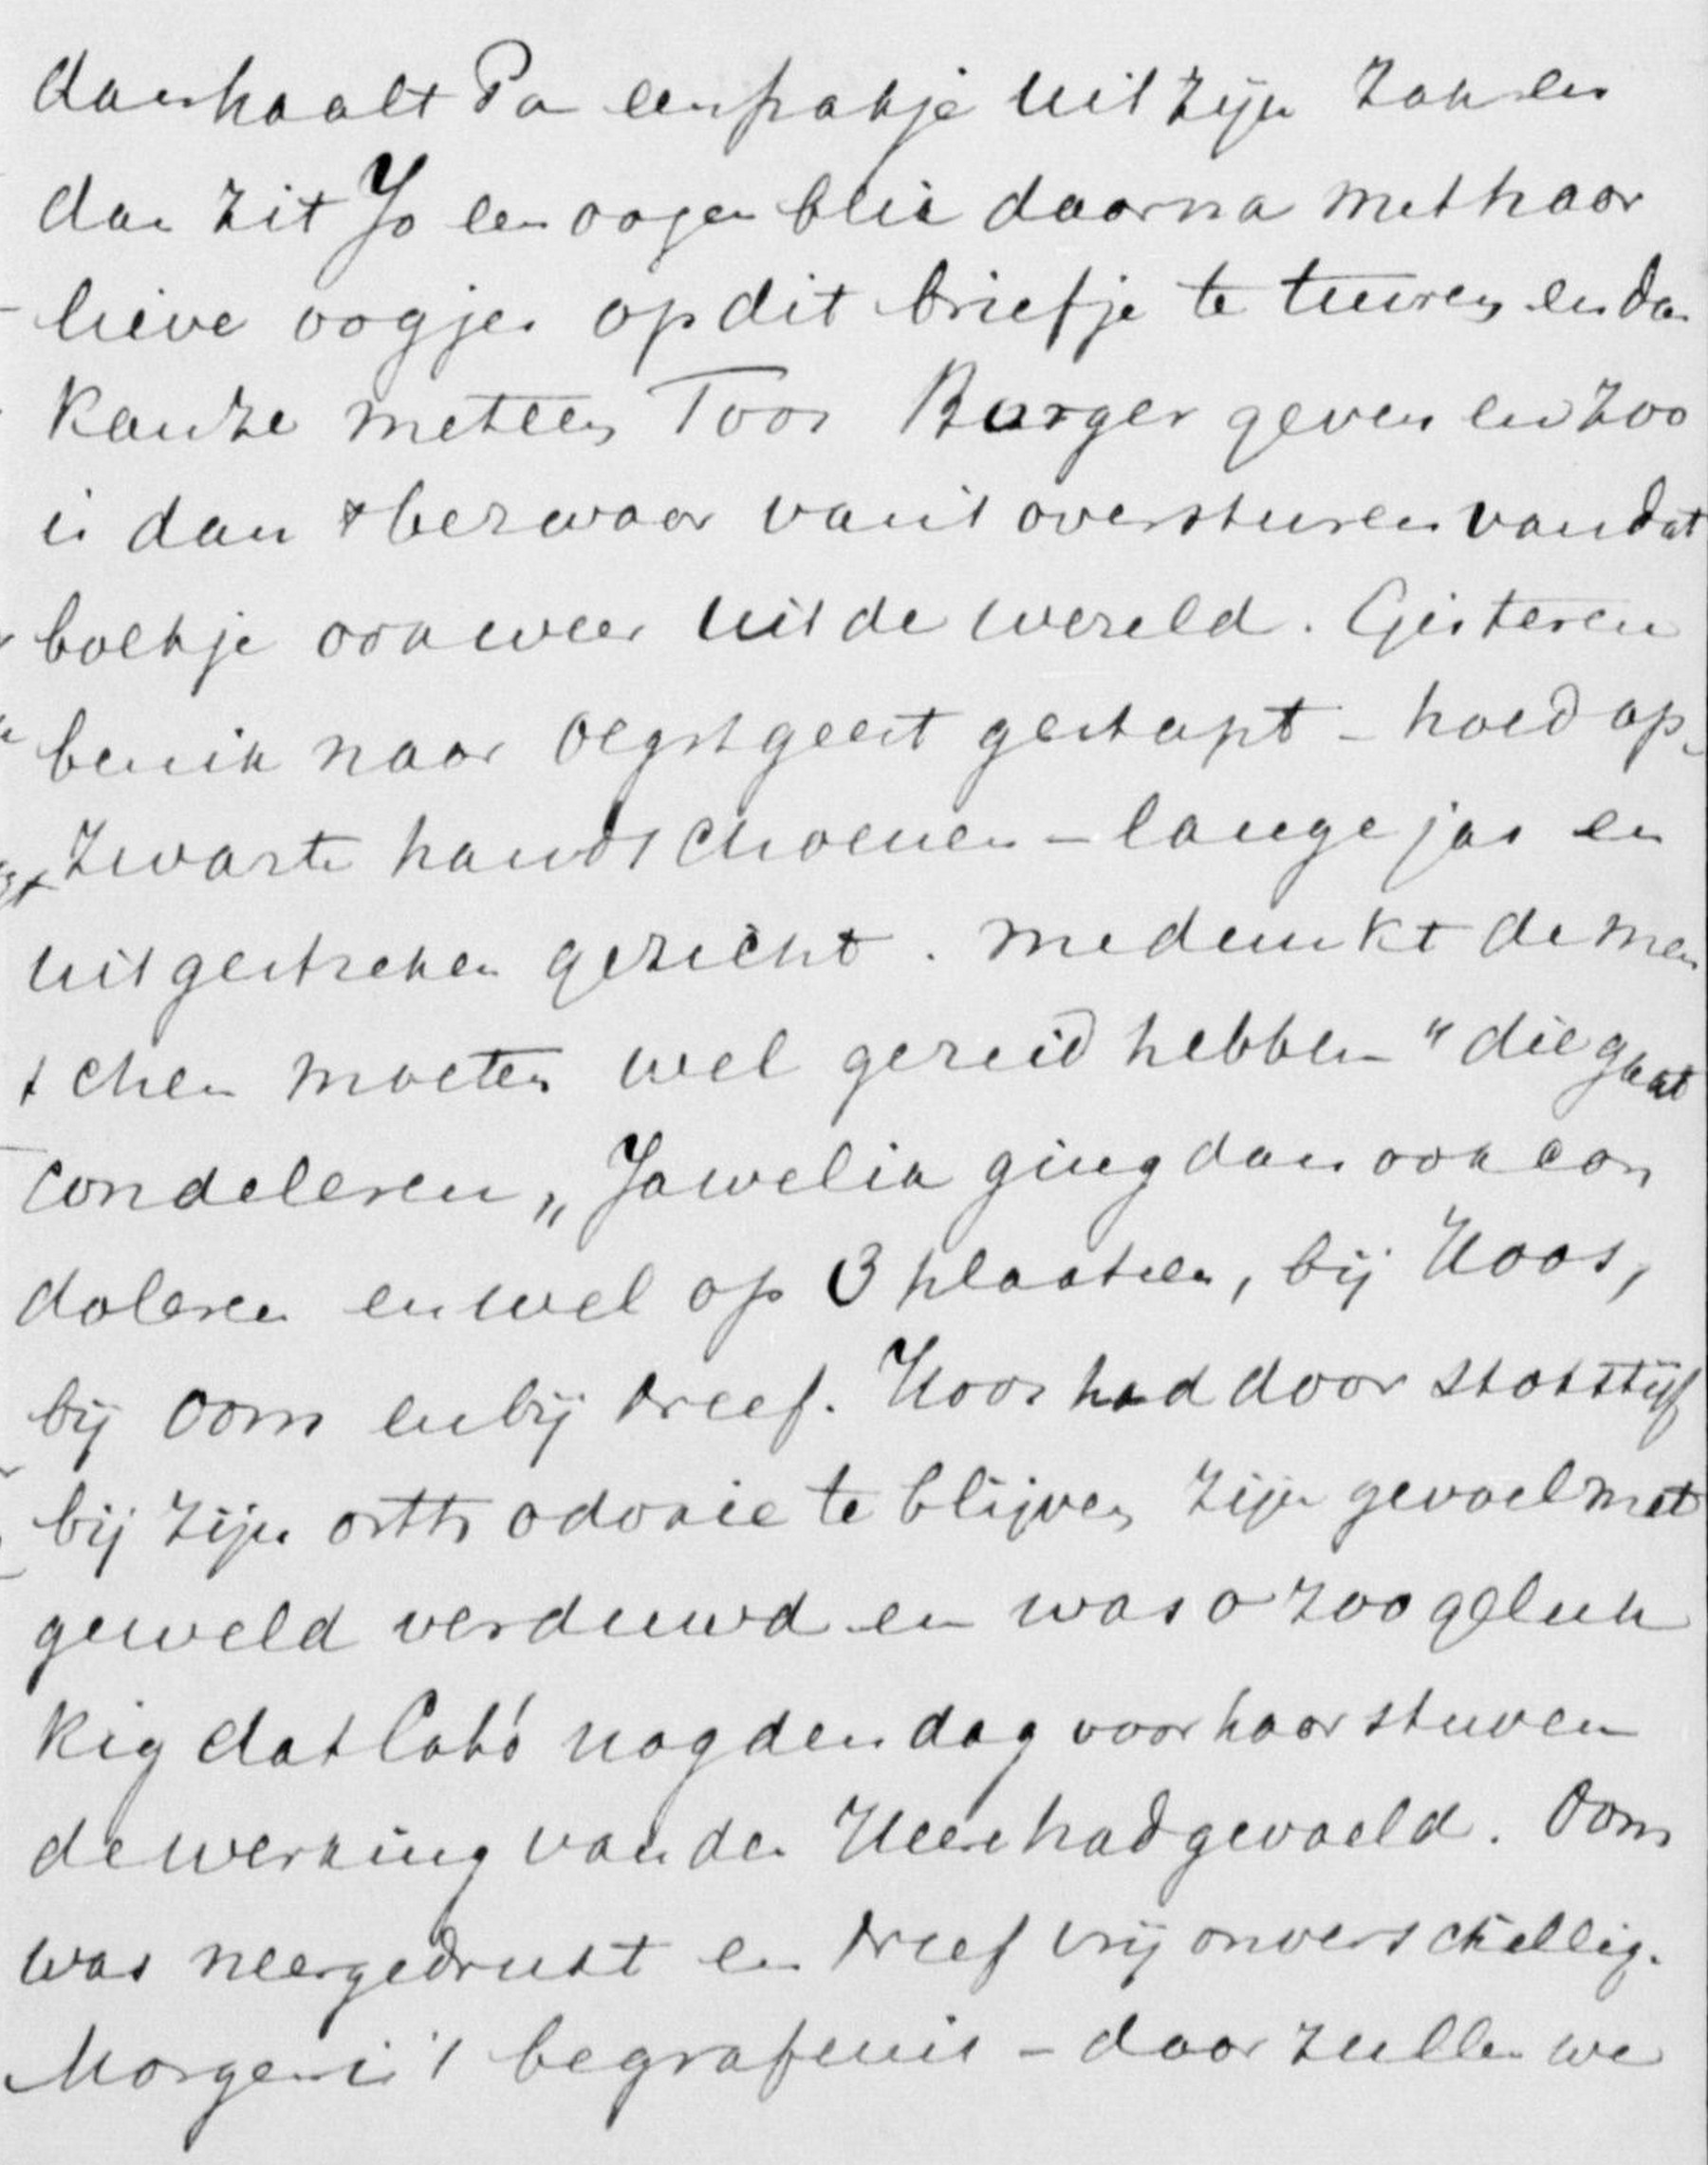 dan haalt Pa een pakje uit zijn zak en
dan zit Jo een oogenblik daarna met haar
lieve oogjes op dit briefje te turen en dan
kan ze meteen Toos Burger geven en zoo
is dan 't bezwaar van 't oversturen van dat
boekje ook weer uit de wereld. Gisteren
ben ik naar Oegstgeest gestapt - hoed op -
zwarte handschoenen - lange jas en
uitgestreken gezicht. me dunkt de men
schen moeten wel gezeid hebben "die gaat
condeleren„ Jawel ik ging dan ook con
doleren en wel op 3 plaatsen, bij Koos,
bij Oom en bij Dreef. Koos had door stokstijf
bij zijn orthodoxie te blijven zijn gevoel met
geweld verduwd en was o zoo geluk
kig dat Cato nog den dag voor haar sterven
de werking van den Heere had gevoeld. Oom
was neergedrukt en Dreef vrij onverschillig.
Morgen is 't begrafenis - daar zullen we